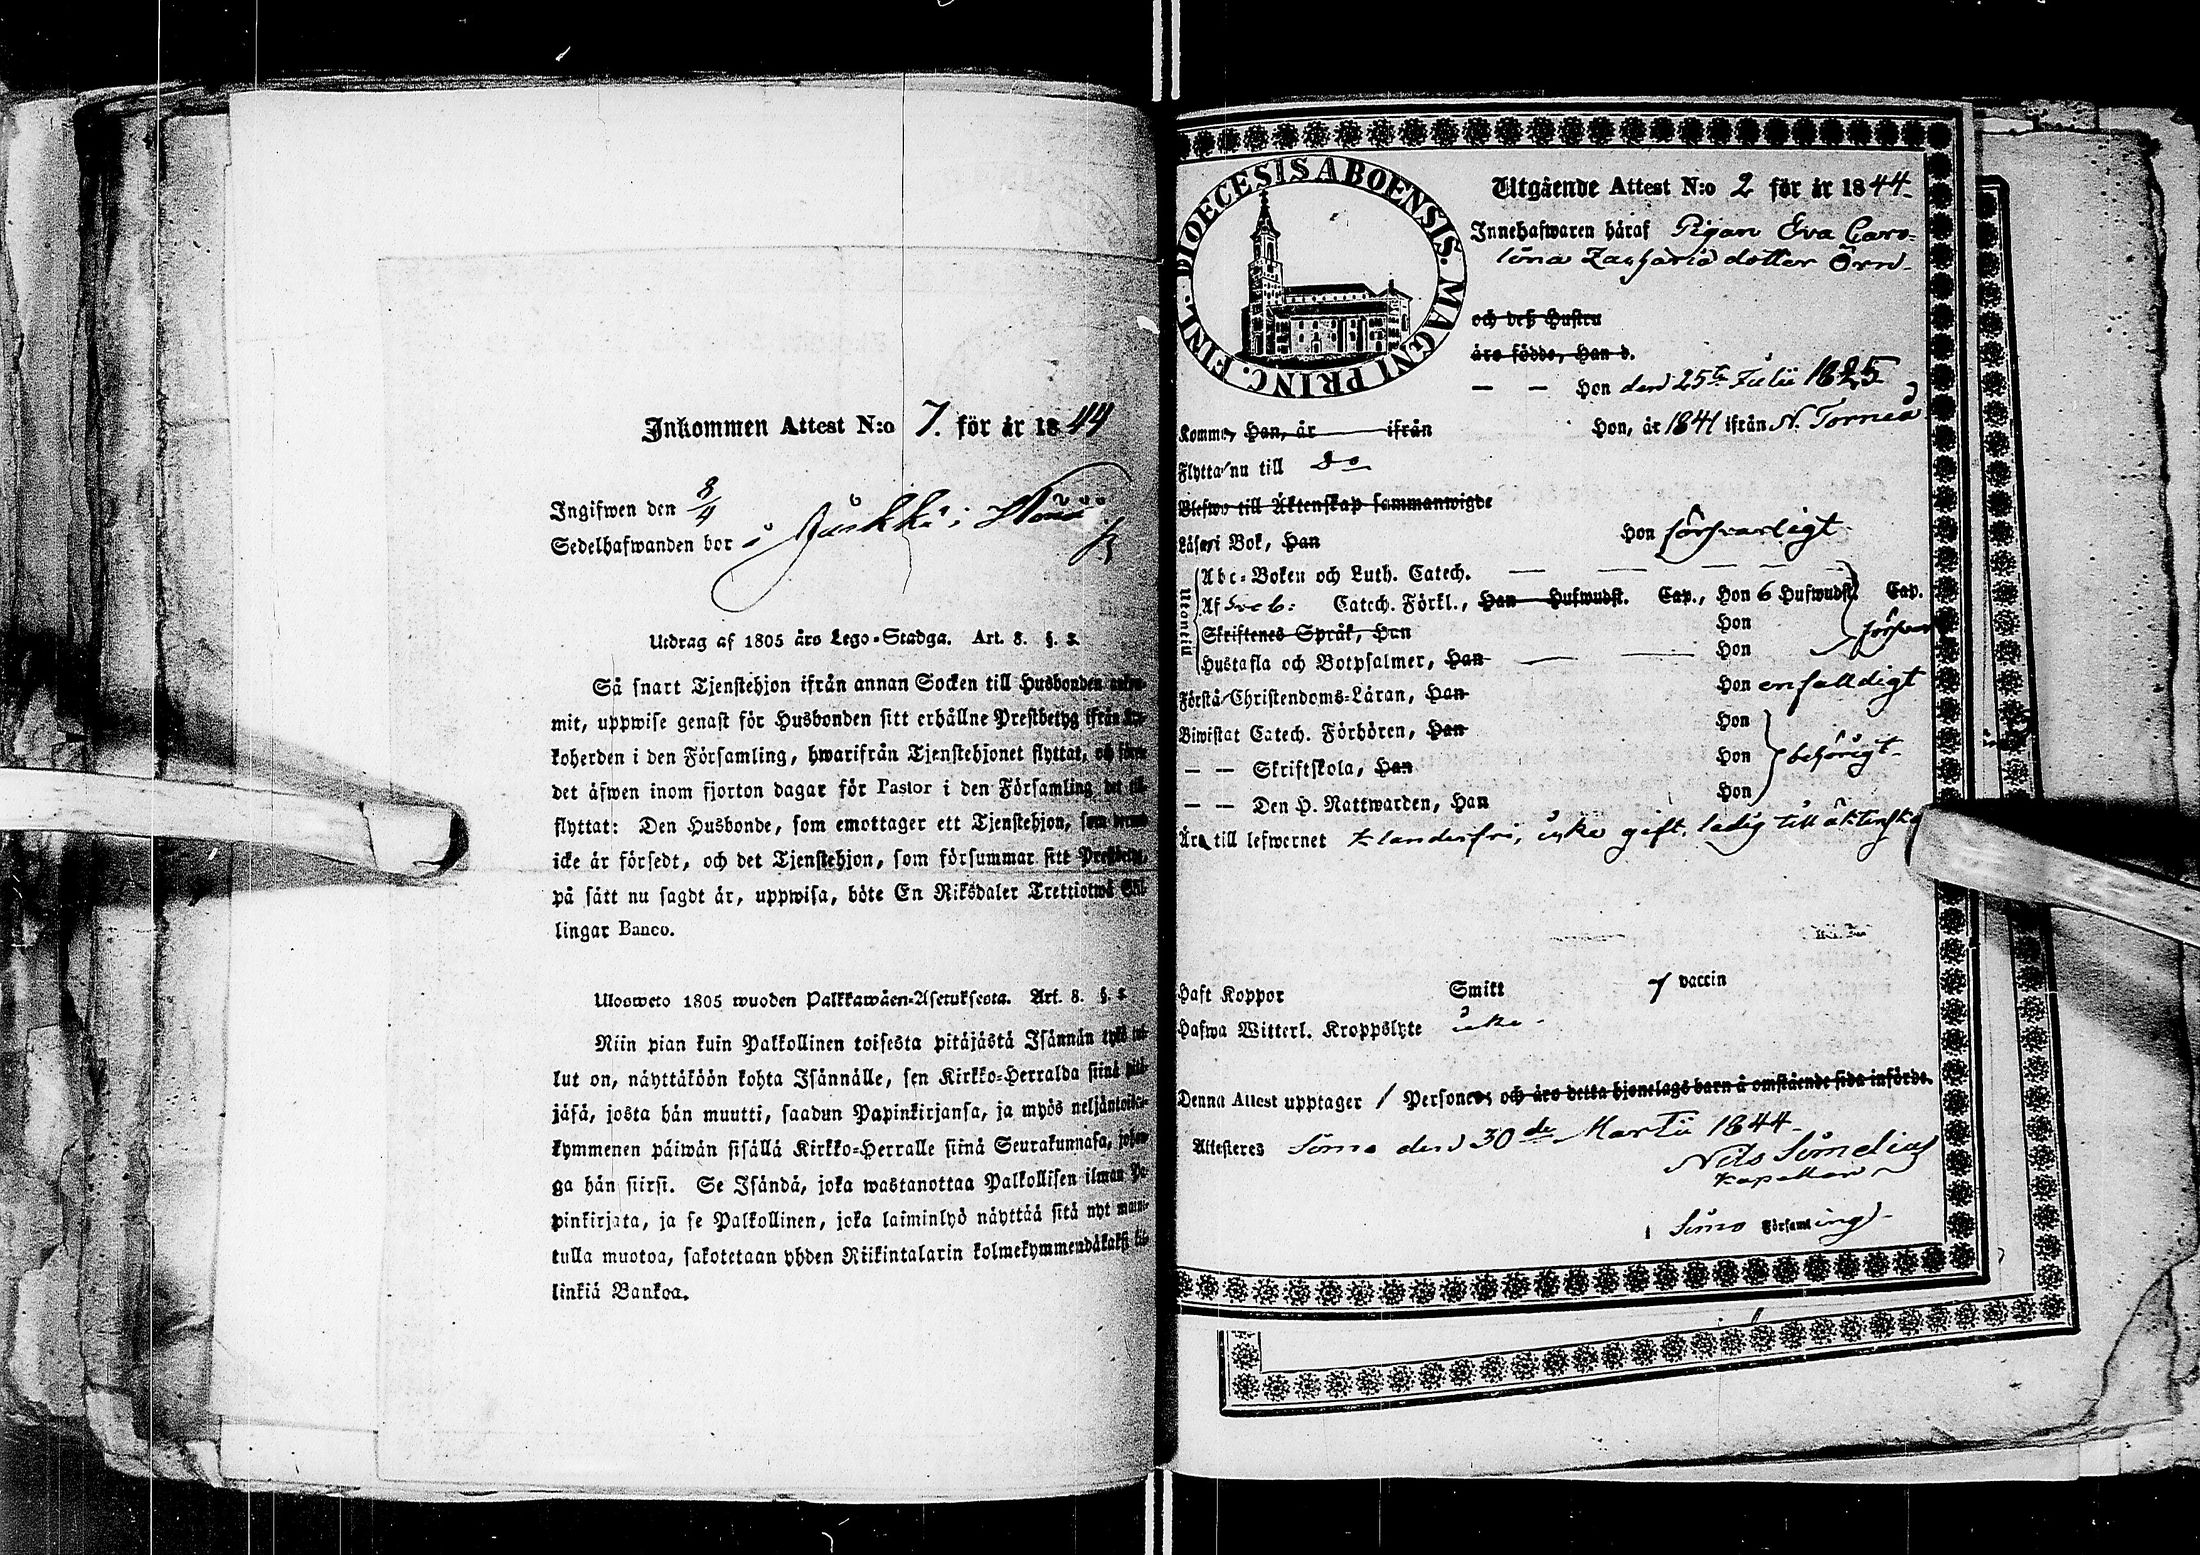 Inkommen Attest N:o 7. för år 1844
Ingifwen den 8/4
Sedelhafwanden bor i
Utdrag af 1805 års Lego-Stadga. Art. 8. §. 3.
Så snart Tjenstehjon ifrån annan Socken till Husbonden
mit, uppwise genast för Husbonden sitt erhållne Prestbetyg ifrån
koherden i den Församling, hwarifrån Tjenstehjonet flyttat, och
det äfwen inom fjorton dagar för Pastor i den Församling det
flyttat: Den Husbonde, som emottager ett Tjenstehjon, som
icke är försedt, och det Tjenstehjon, som försummar sitt Prestbetyg,
på sätt nu sagdt är, uppwisa, böte En Riksdaler Trettiotwå
lingar Banco.
Ulosweto 1805 wuoden Palkkawäen-Asetuksesta. Art. 8. §. 3
Niin pian kuin Palkollinen toisesta pitäjästä Isännän tykö
lut on, näyttäköön kohta Isännälle, sen Kirkko-Herralda siinä
jäsä, josta hän muutti, saadun Papinkirjansa, ja myös neljäntoista-
kymmenen päiwän sisällä Kirkko-Herralle siinä Seurakunnasa,
ga hän siirsi. Se Isändä, joka wastanottaa Palkollisen ilman Pa-
pinkirjata, ja se Palkollinen, joka laiminlyö näyttää sitä nyt
tulla muotoa, sakotetaan yhden Riikintalarin kolmekymmendäkaksi
linkiä Bankoa.
DIOECESIS ABOENSIS. MAGNI PRINC. FINL.
Utgående Attest N:o 2 för år 1844
Innehafwaren häraf Pigan Eva Caro-
lina Zacharia dotter Örn
och deß Hustru
äro födde, Han d.
— — Hon den 25te Julii 1825
Komme, Han, år — ifrån Hon, år 1841 ifrån N. Torneå
Flytta nu till Do
Blefwo till Äktenskap sammanwigde
Läsa i Bok, Han Hon försvarligt
Utontill
Abc-Boken och Luth. Catech. — — — —
Af Catech. Förkl., Han Hufwudst. Cap., Hon 6 Hufwudst. Cap.
Skriftenes Språk, Han Hon
Hustafla och Botpsalmer, Han — — Hon
Förstå Christendoms-Läran, Han Hon enfalldigt
Biwistat Catech. Förhören, Han Hon
— — Skriftskola, Han Hon behörigt
— — Den H. Nattwarden, Han Hon
Äro till lefwernet klanderfri, icke gift, ledig till äktenska
Haft Koppor Smitt / vaccin
Hafwa Witterl. Kroppslyte icke
Denna Attest upptager 1 Personer och äro detta hjonelags barn å omstående sida införde.
Attesteres Simo den 30de Martii 1844
Nils Simelius
Kapellan
i Simo Församling